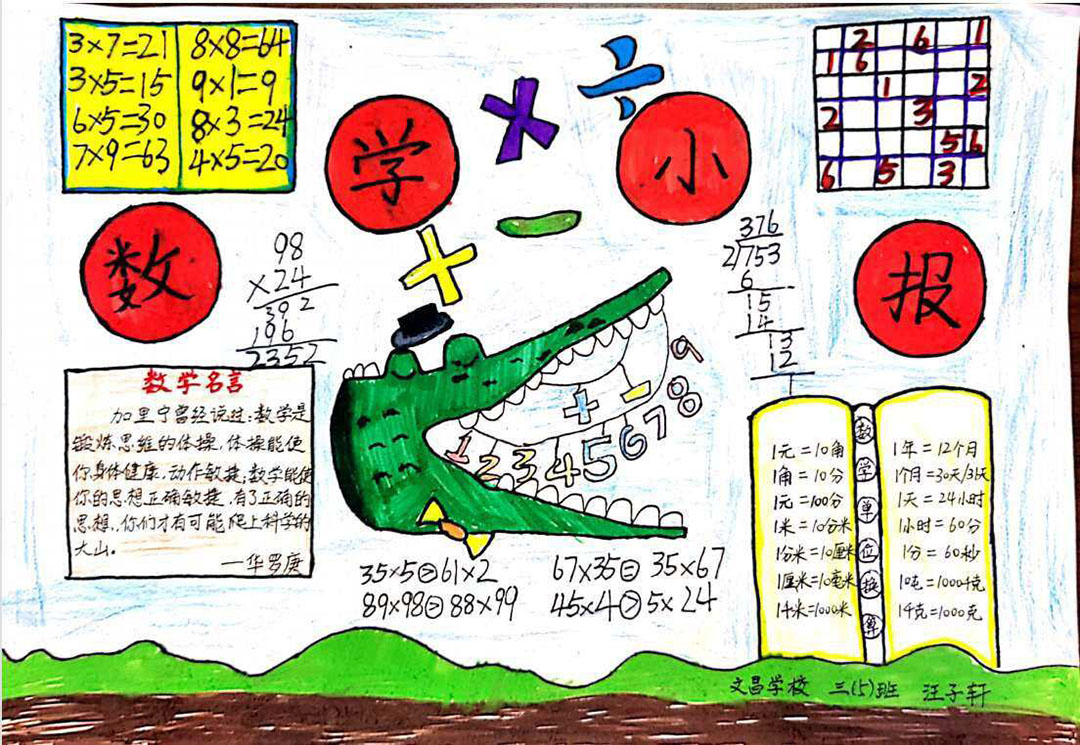 3×7=21
3×5=15
6×5=30
7×9=63
8×8=64
9×1=9
8×3=24
4×5=20
数
学
小
报
×
÷
+
−
2 6 1
1 6
1 2
2 3
5 6
6 5 3
98
×24
392
196
2352
376
2/753
6
15
14
13
12
1
数学名言
加里宁曾经说过:数学是
锻炼思维的体操,体操能使
你身体健康,动作敏捷;数学能使
你的思想正确敏捷,有了正确的
思想,你们才有可能爬上科学的
大山。
—华罗庚
1 2 3 4 5 6 7 8 9
+ −
35×5>61×2
67×35=35×67
89×98>88×99
45×4>5×24
1元=10角
1角=10分
1元=100分
1米=10分米
1分米=10厘米
1厘米=10毫米
1千米=1000米
数
学
单
位
换
算
1年=12个月
1个月=30天/31天
1天=24小时
1小时=60分
1分=60秒
1千克=1000克
文昌学校 三(5)班 汪子轩